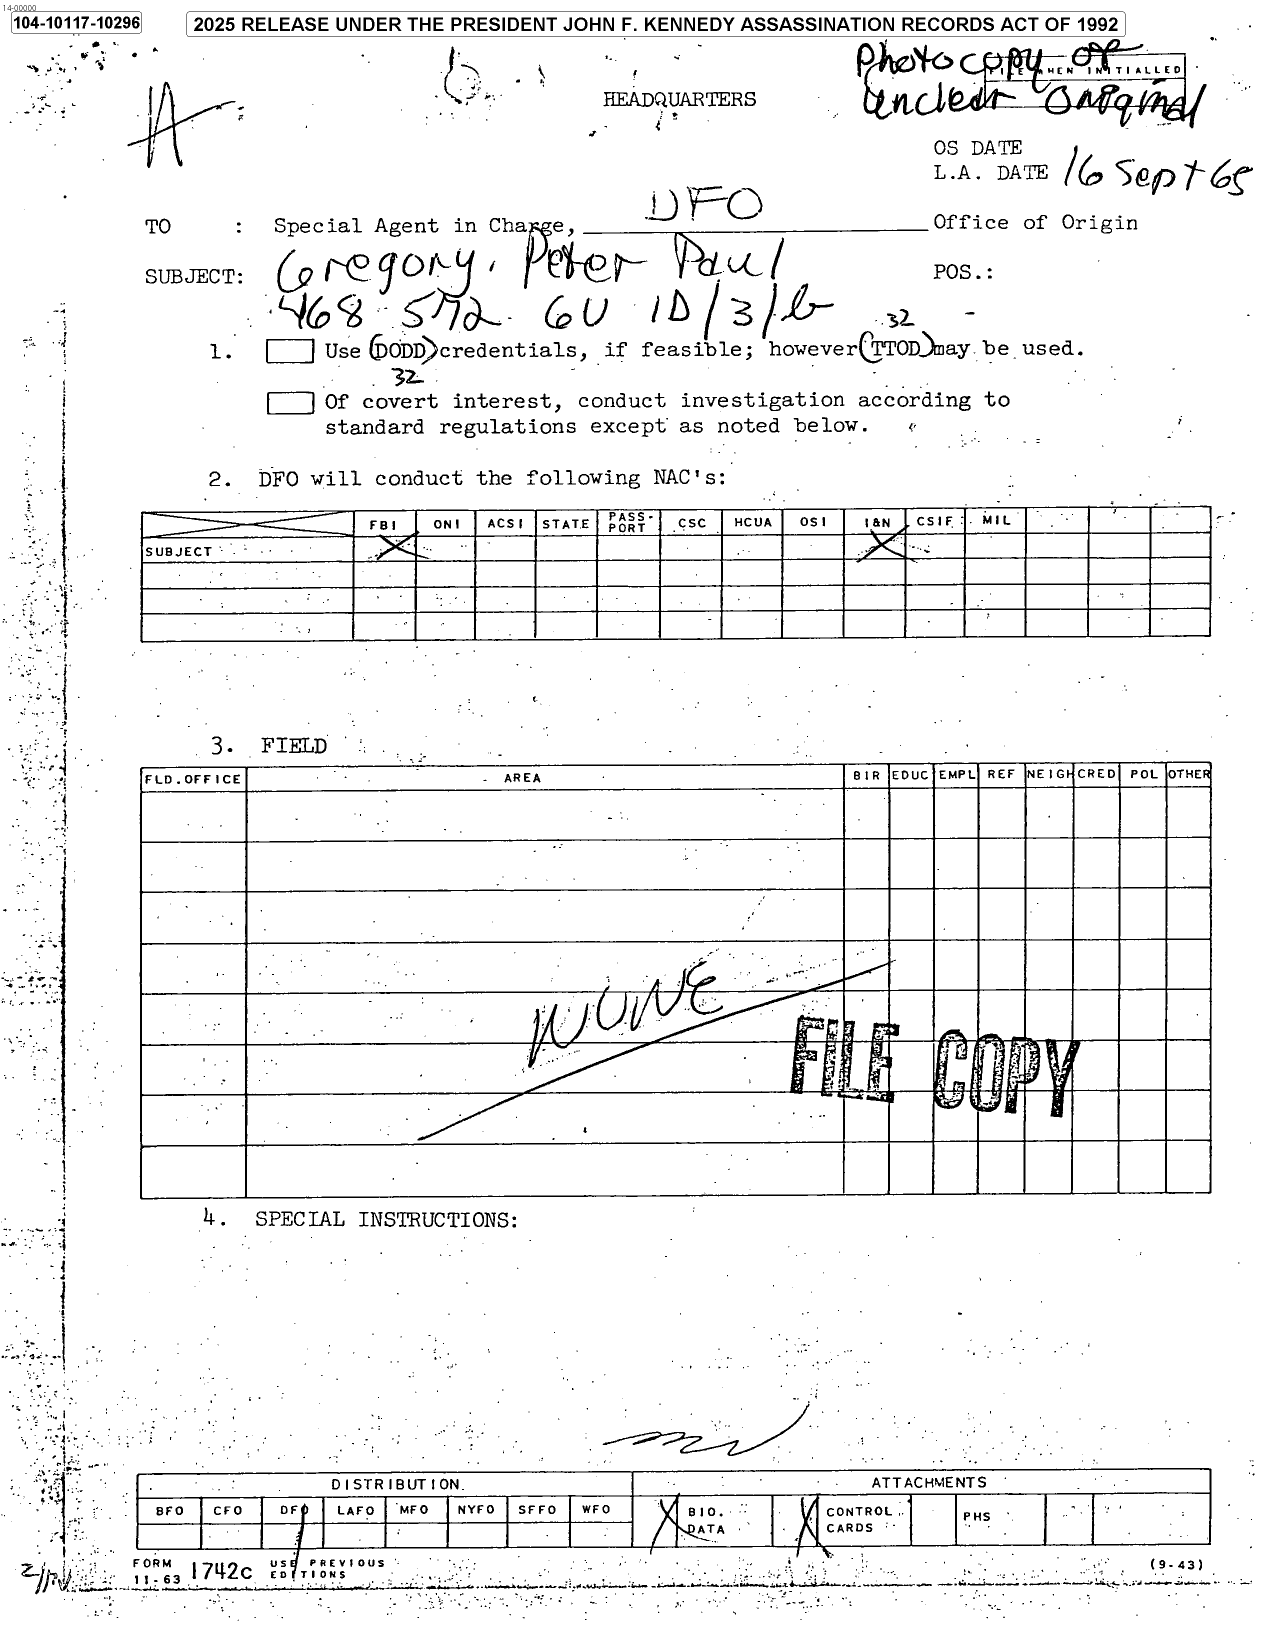 14-00000
104-10117-10296
2025 RELEASE UNDER THE PRESIDENT JOHN F. KENNEDY ASSASSINATION RECORDS ACT OF 1992
Photocopy of
FILE WHEN INITIALLED
HEADQUARTERS
Unclear Original
OS DATE
L.A. DATE 16 Sept 65
TO : Special Agent in Charge, DFO Office of Origin
SUBJECT: Gregory, Peter Paul POS.:
468 572 GU 1D/3/b
32
1. Use DODD credentials, if feasible; however TTOD may be used.
32
Of covert interest, conduct investigation according to
standard regulations except as noted below.
2. DFO will conduct the following NAC's:
FBI ONI ACSI STATE PASS-PORT CSC HCUA OSI I&N CSIF MIL
SUBJECT X X
3. FIELD
FLD.OFFICE AREA BIR EDUC EMPL REF NEIGH CRED POL OTHER
NONE
FILE COPY
4. SPECIAL INSTRUCTIONS:
DISTRIBUTION ATTACHMENTS
BFO CFO DFO LAFO MFO NYFO SFFO WFO X BIO. DATA X CONTROL CARDS PHS
FORM 11-63 1742c USE PREVIOUS EDITIONS (9-43)